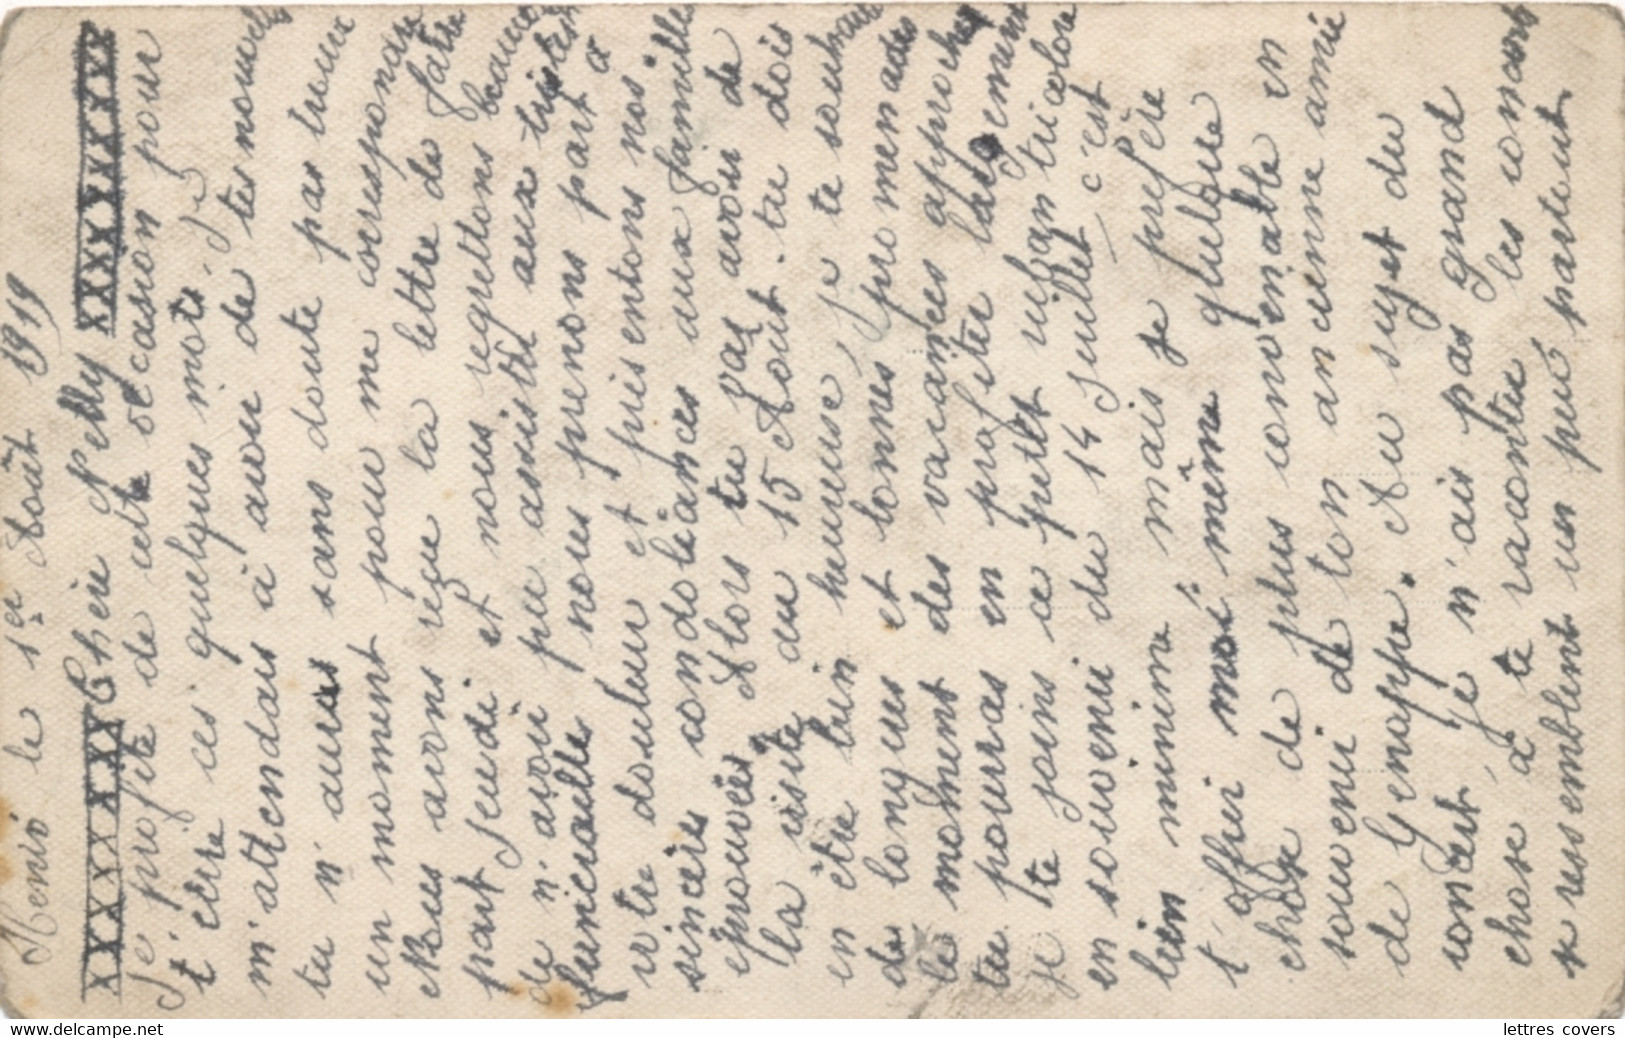 le 1er Août 1919
XXXXXXX Chère Nelly XXXXXXXX
Je profite de cette occasion pour
t'écrire ces quelques mots. Je
m'attendais à avoir de tes nouvelles
tu n'auras sans doute pas trouvé
un moment pour me correspondre
Nous avons reçu la lettre de faire
part jeudi et nous regrettons beaucoup
de n'avoir pu assister aux tristes
funérailles nous prenons part à
votre douleur et présentons nos
sincères condoléances aux familles
éprouvées. Alors tu vas avoir de
la visite au 15 Août. tu dois
en être bien heureuse, je te souhaite
de longues et bonnes promenades
le moment des vacances approche
tu pourras en profiter largement
je te joins ce petit ruban tricolore
en souvenir du 14 Juillet, c'est
bien minime mais je préfère
t'offrir moi même quelque
chose de plus convenable en
souvenir de ton ancienne amie
de Genappe. Au sujet du
concert je n'ais pas grand
chose à te raconter les concerts
se ressemblent un peu partout.
lettres covers